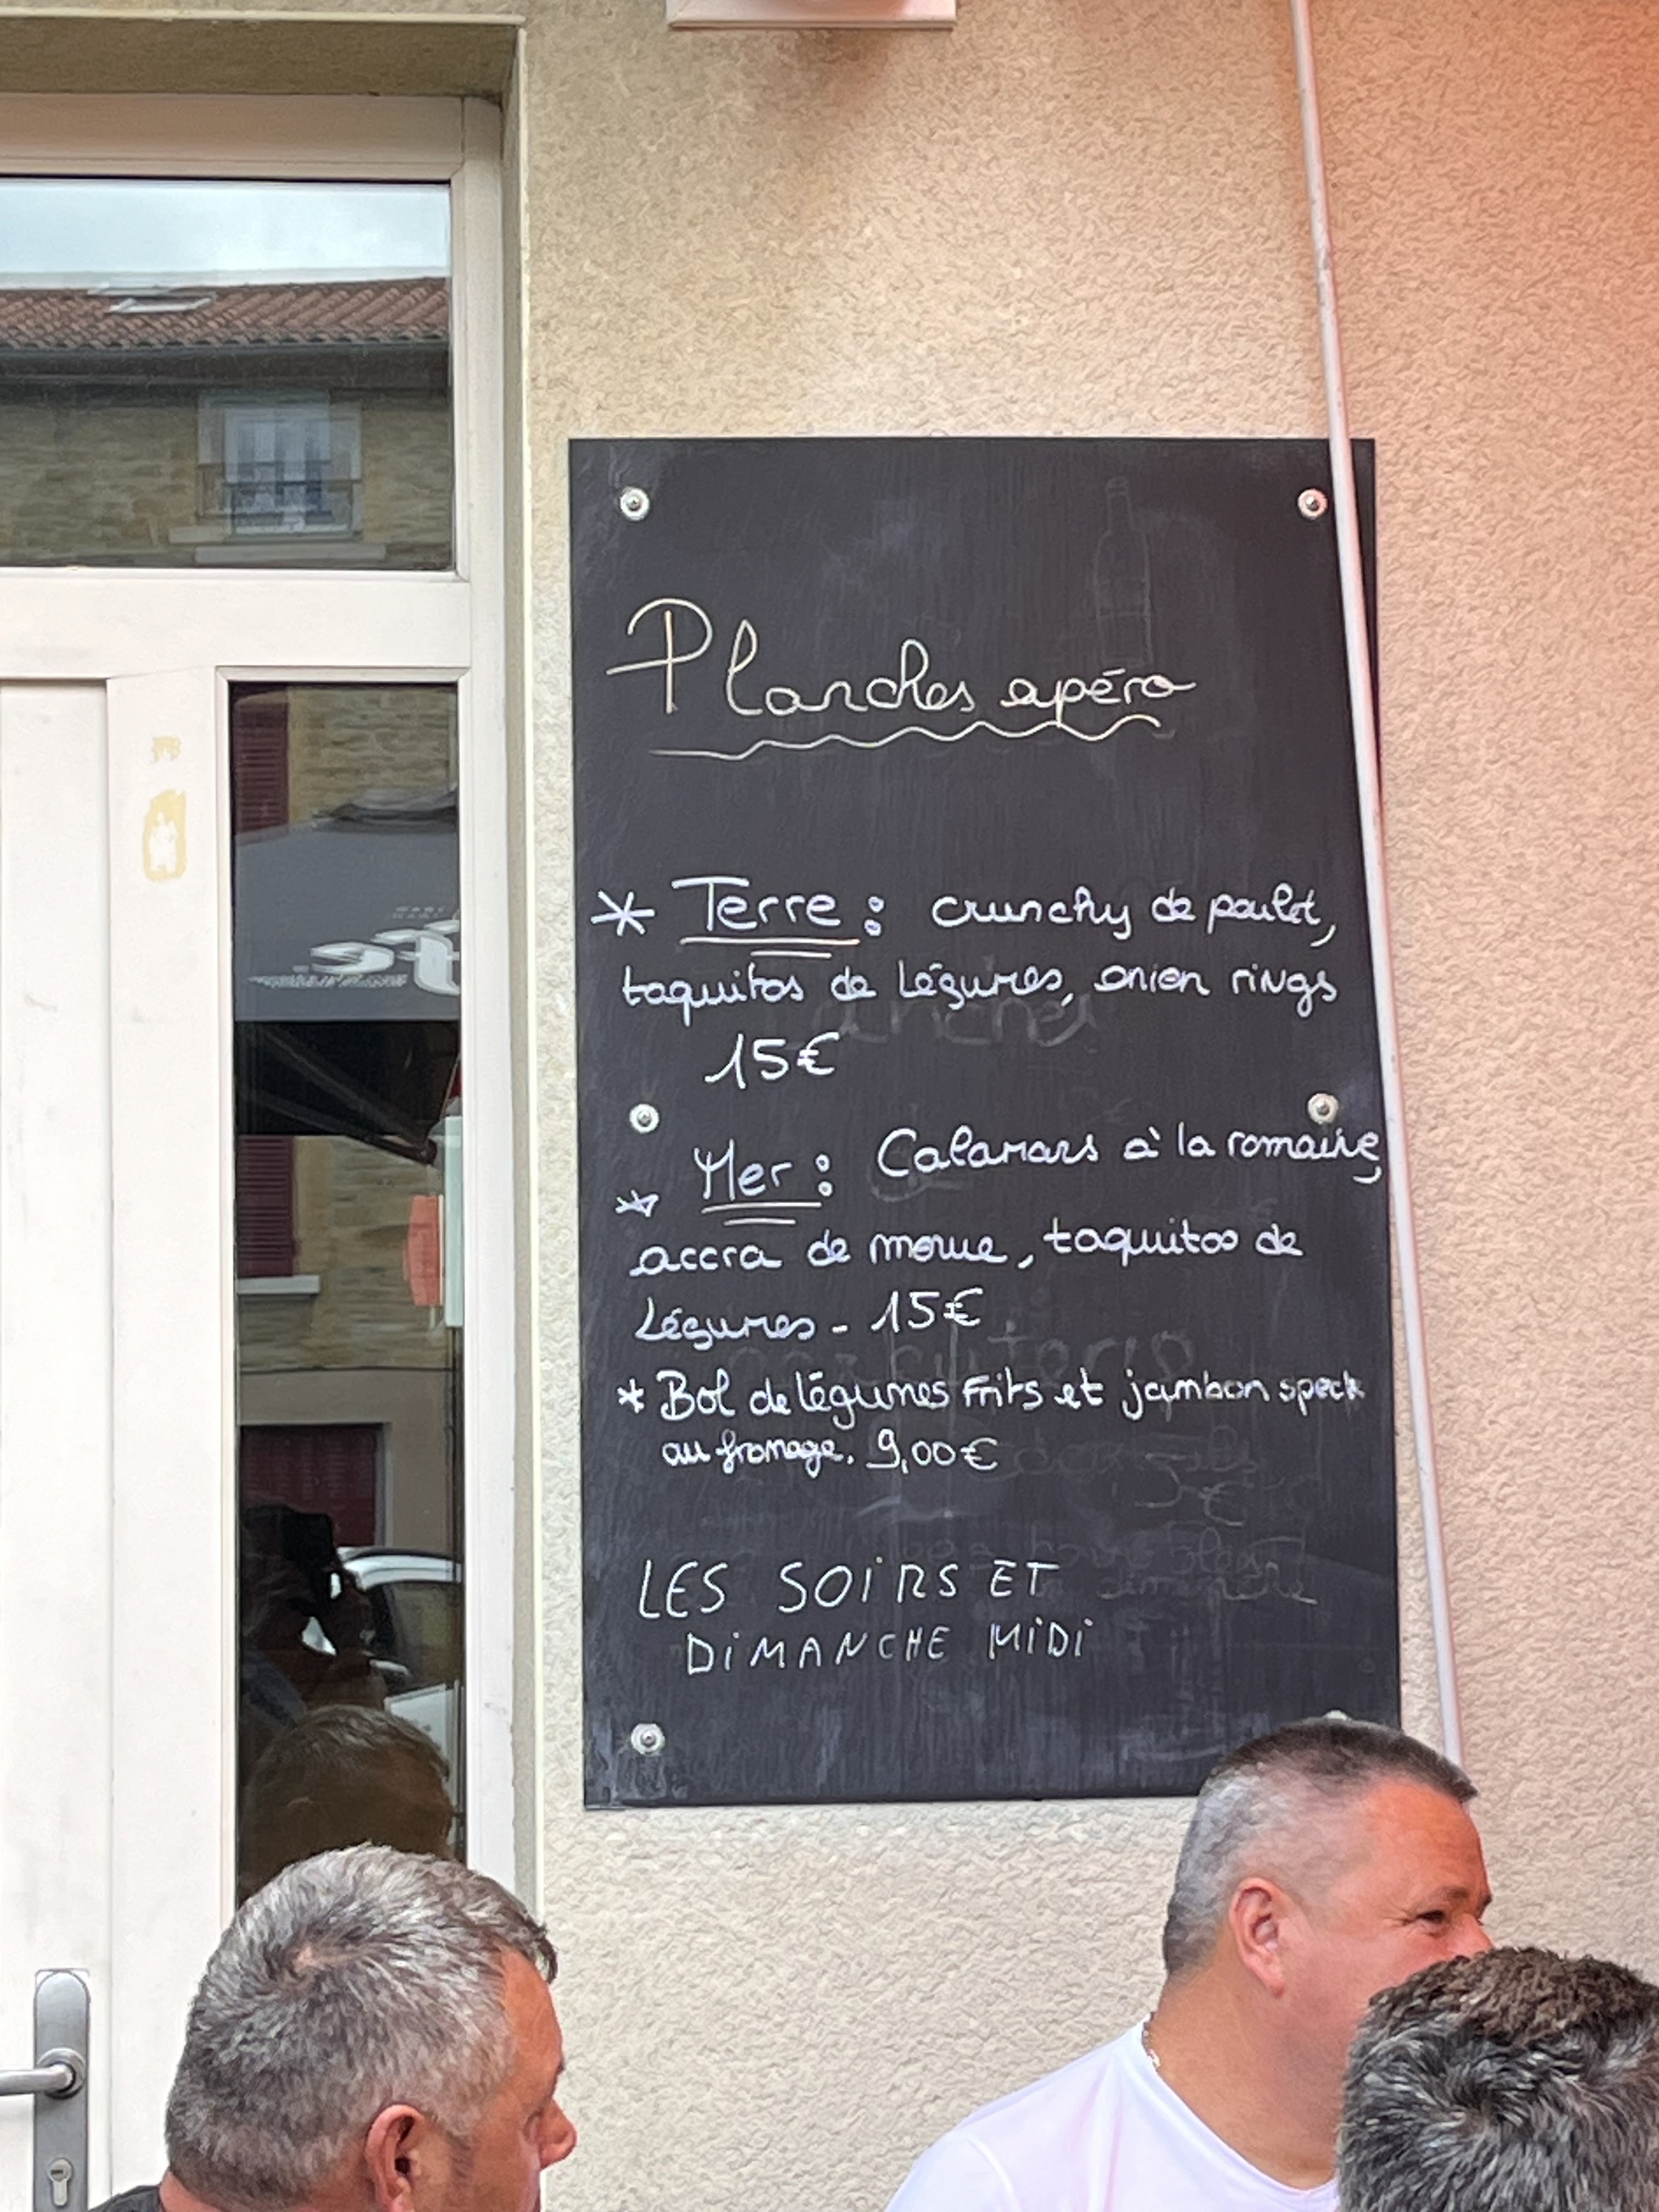 Planches apéro
* Terre : crunchy de poulet,
taquitos de légumes, onion rings
15€
* Mer : Calamars à la romaine,
accra de morue, taquitos de
légumes - 15€
* Bol de légumes frits et jambon speck
au fromage. 9,00€
LES SOiRS ET
DiMANCHE MiDi